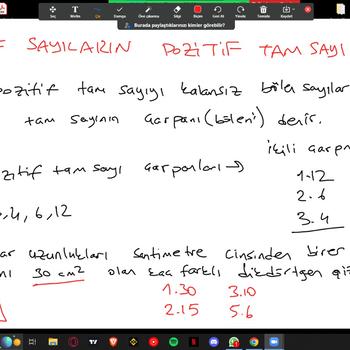 Seç Metin Çiz Damga Öne çıkarıcı Silgi Biçim Geri Al Yinele Temizle Kaydet
Burada paylaştıklarınızın kimler görebilir?
F SAYILARIN POZİTİF TAM SAYI
pozitif tam sayıyı kalansız bölen sayılar
tam sayının çarpanı (böleni) denir.
ikili çarpa
zitif tam sayı çarpanları →
1.12
2.6
, 4, 6, 12
3.4
ar uzunlukları santimetre cinsinden birer
nı 30 cm² olan kaç farklı dikdörtgen çiz
1.30 3.10
2.15 5.6